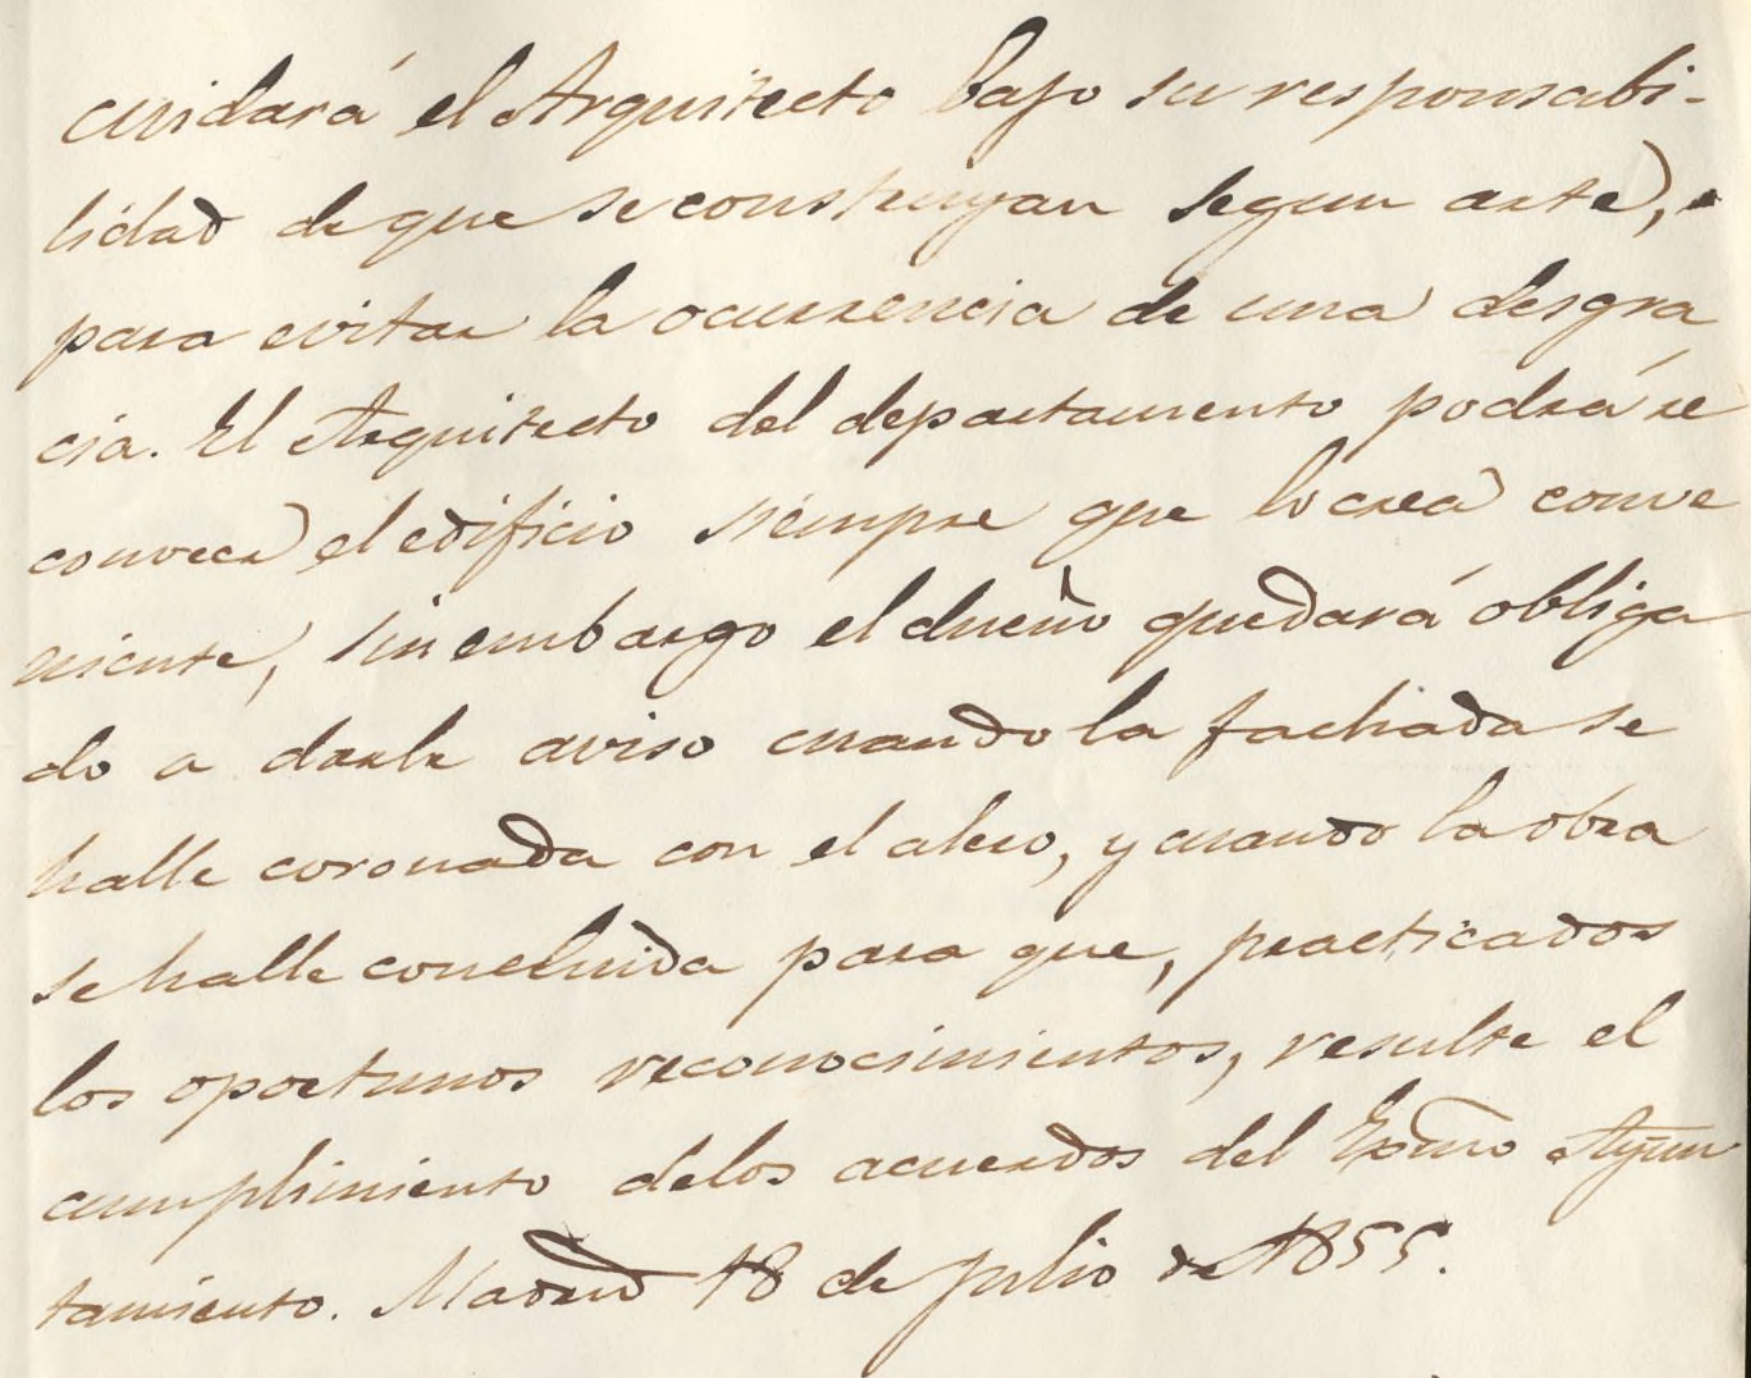 cuidará el Arquitecto bajo su responsabi-
lidad de que se construyan segun arte,
para evitar la ocurrencia de una desgra
cia. El Arquitecto del departamento podrá re
conocer el edificio siempre que lo crea conve
niente, sin embargo el dueño quedará obliga
do a darle aviso cuando la fachada se
halle coronada con el alero, y cuando la obra
se halle concluida para que, practicados
los oportunos reconocimientos, resulte el
cumplimiento delos acuerdos del Exmo Ayun
tamiento. Madrid 18 de Julio de 1855.